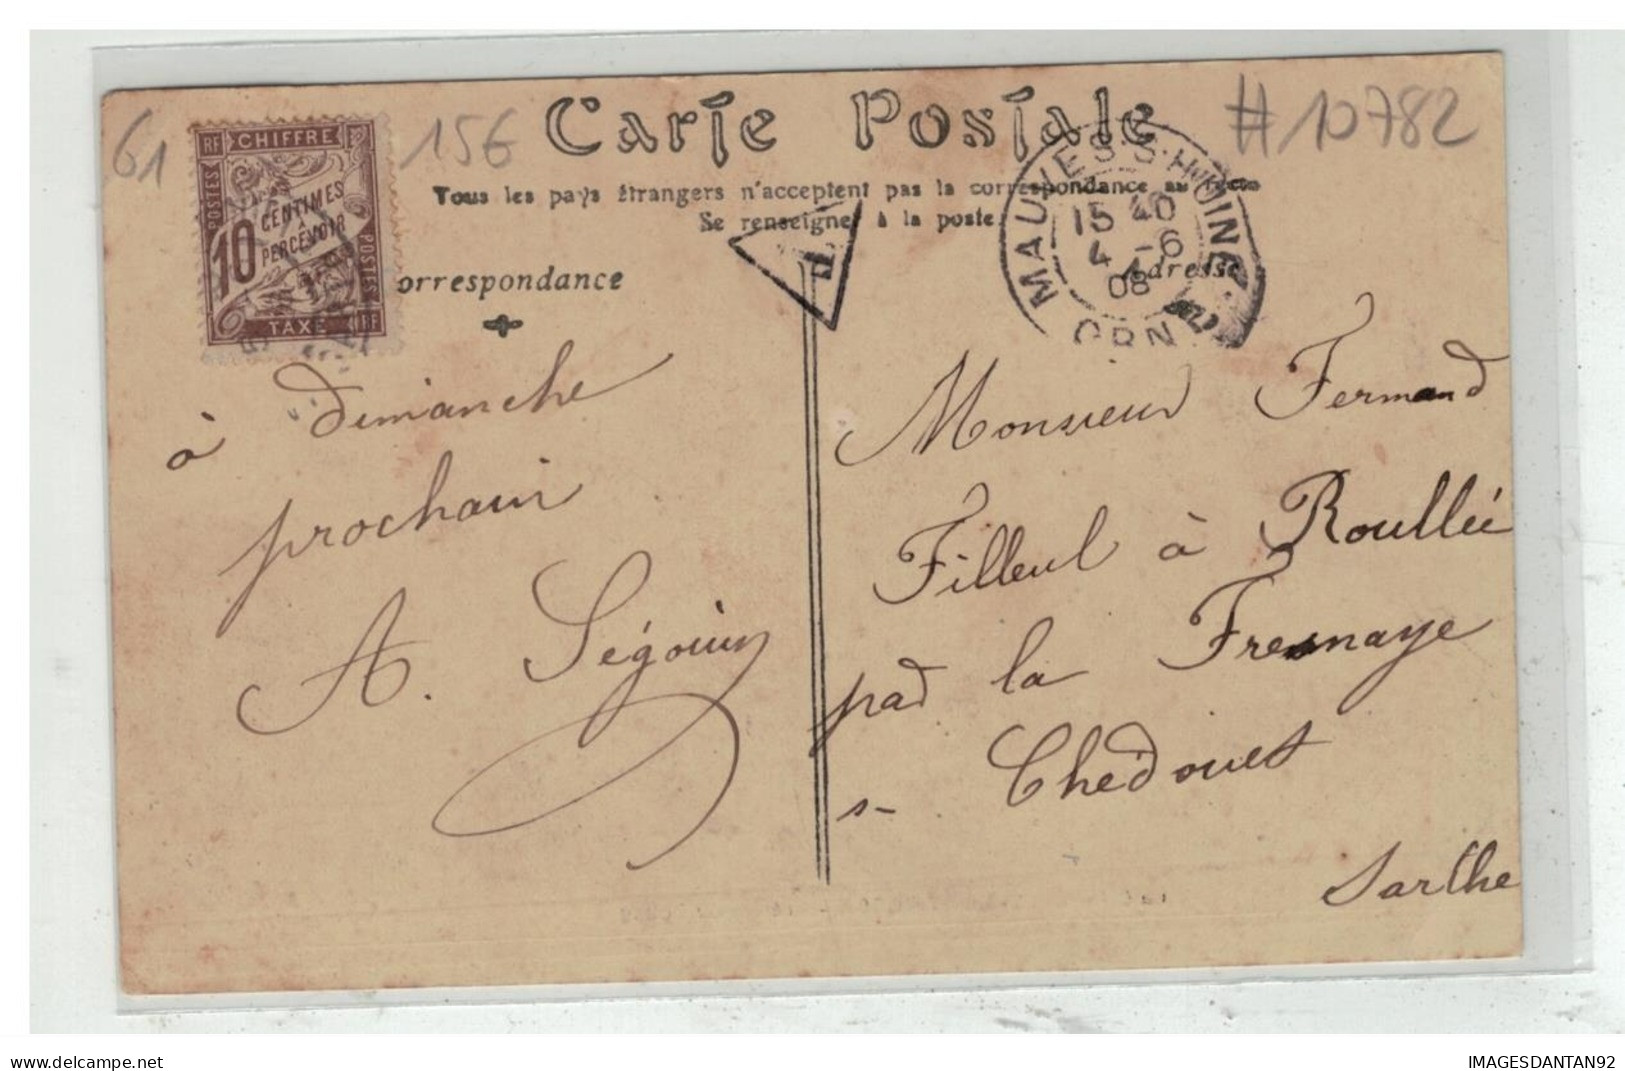 61
15€
#10782
Carte Postale
Tous les pays étrangers n'acceptent pas la correspondance au recto
Se renseigner à la poste
RF CHIFFRE
POSTES
10 CENTIMES
A
PERCEVOIR
POSTES
TAXE RF
T
MAUVES-S-HUINE
15 40
4 -6
08
ORN
Correspondance
Adresse
à dimanche
prochain
A. Ségouin
Monsieur Fernand
Filleul à Roullée
par la Fresnaye
s- Chédouet
Sarthe
delcampe.net
IMAGESDANTAN92